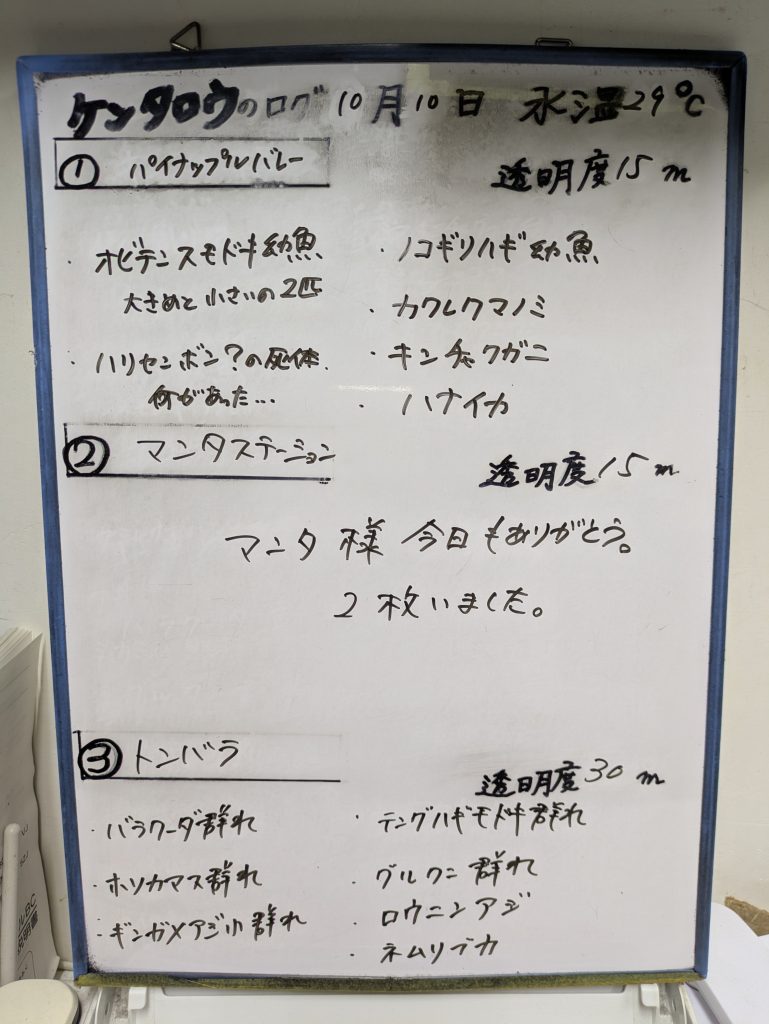 ケンタロウのログ 10月10日 水温29℃
① パイナップルバレー
透明度15m
・オビテンスモドキ幼魚
大きめと小さいの2匹
・ハリセンボン?の死体.
何があった…
・ノコギリハギ幼魚
・カクレクマノミ
・キンチャクガニ
・ハナイカ
② マンタステーション
透明度15m
マンタ様 今日もありがとう。
2枚いました。
③ トンバラ
透明度30m
・バラクーダ群れ
・ホソカマス群れ
・ギンガメアジ小群れ
・テングハギモドキ群れ
・グルクン群れ
・ロウニンアジ
・ネムリブカ